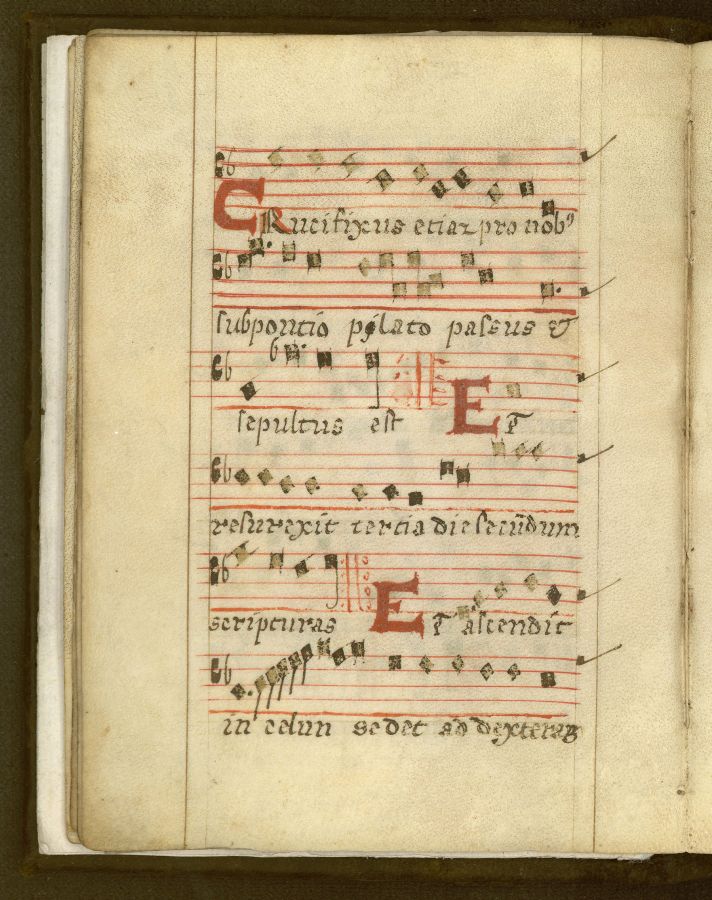 CRucifixus etiaz pro nobꝰ
sub pontio pylato passus &
sepultus est Et
resurexit tertia die secūdum
scripturas Et ascendit
in celun sedet ad dexteraz